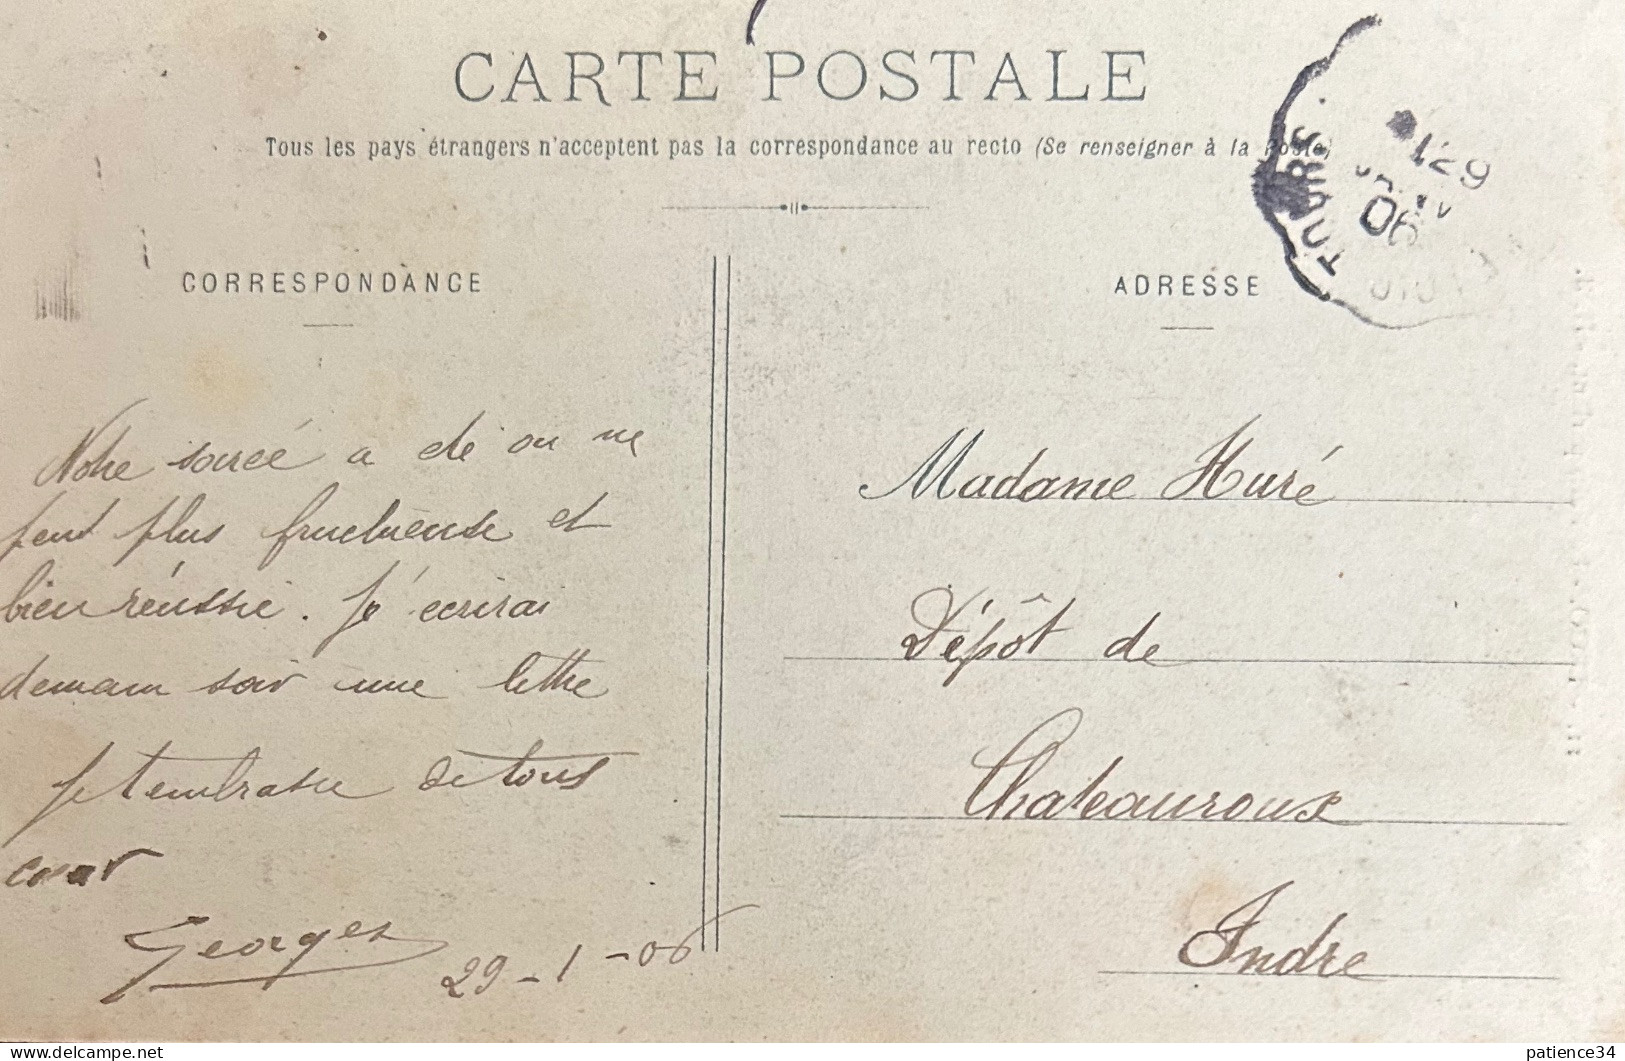 CARTE POSTALE
Tous les pays étrangers n'acceptent pas la correspondance au recto (Se renseigner à la Poste)
CORRESPONDANCE
Notre soirée a été on ne
peut plus fructueuse et
bien réussie. Je t'écrirai
demain soir une lettre
Je t'embrasse de tout
cœur
Georges
29-1-06
ADRESSE
Madame Huré
Dépôt de
Chateauroux
Indre
TOURS
29
06
delcampe.net
patience34